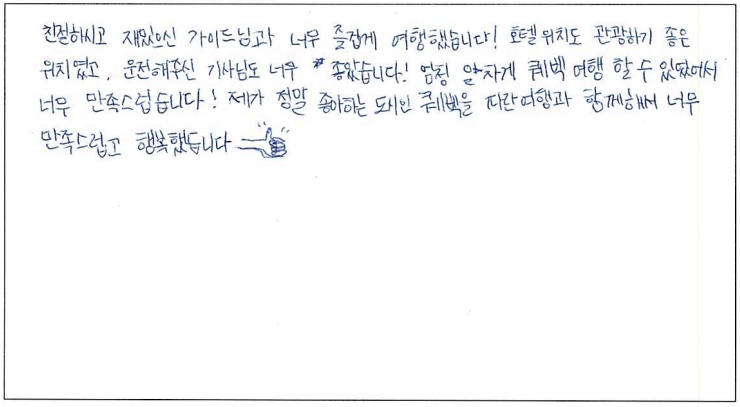 친절하시고 재밌으신 가이드님과 너무 즐겁게 여행했습니다! 호텔 위치도 관광하기 좋은
위치였고, 운전해주신 기사님도 너무 좋았습니다! 엄청 알차게 퀘벡 여행 할 수 있었어서
너무 만족스럽습니다! 제가 정말 좋아하는 도시인 퀘벡을 파란여행과 함께해서 너무
만족스럽고 행복했습니다